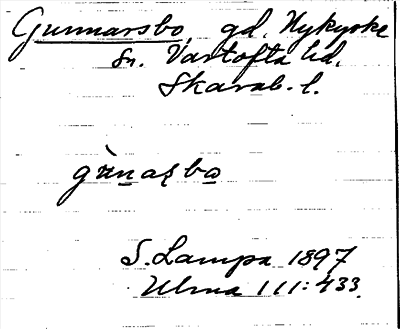 Gunnarsbo, gd. Nykyrke
sn. Vartofta hd.
Skarab. l.
gùnaʂbo
S. Lampa 1897
Ulma 111:433.